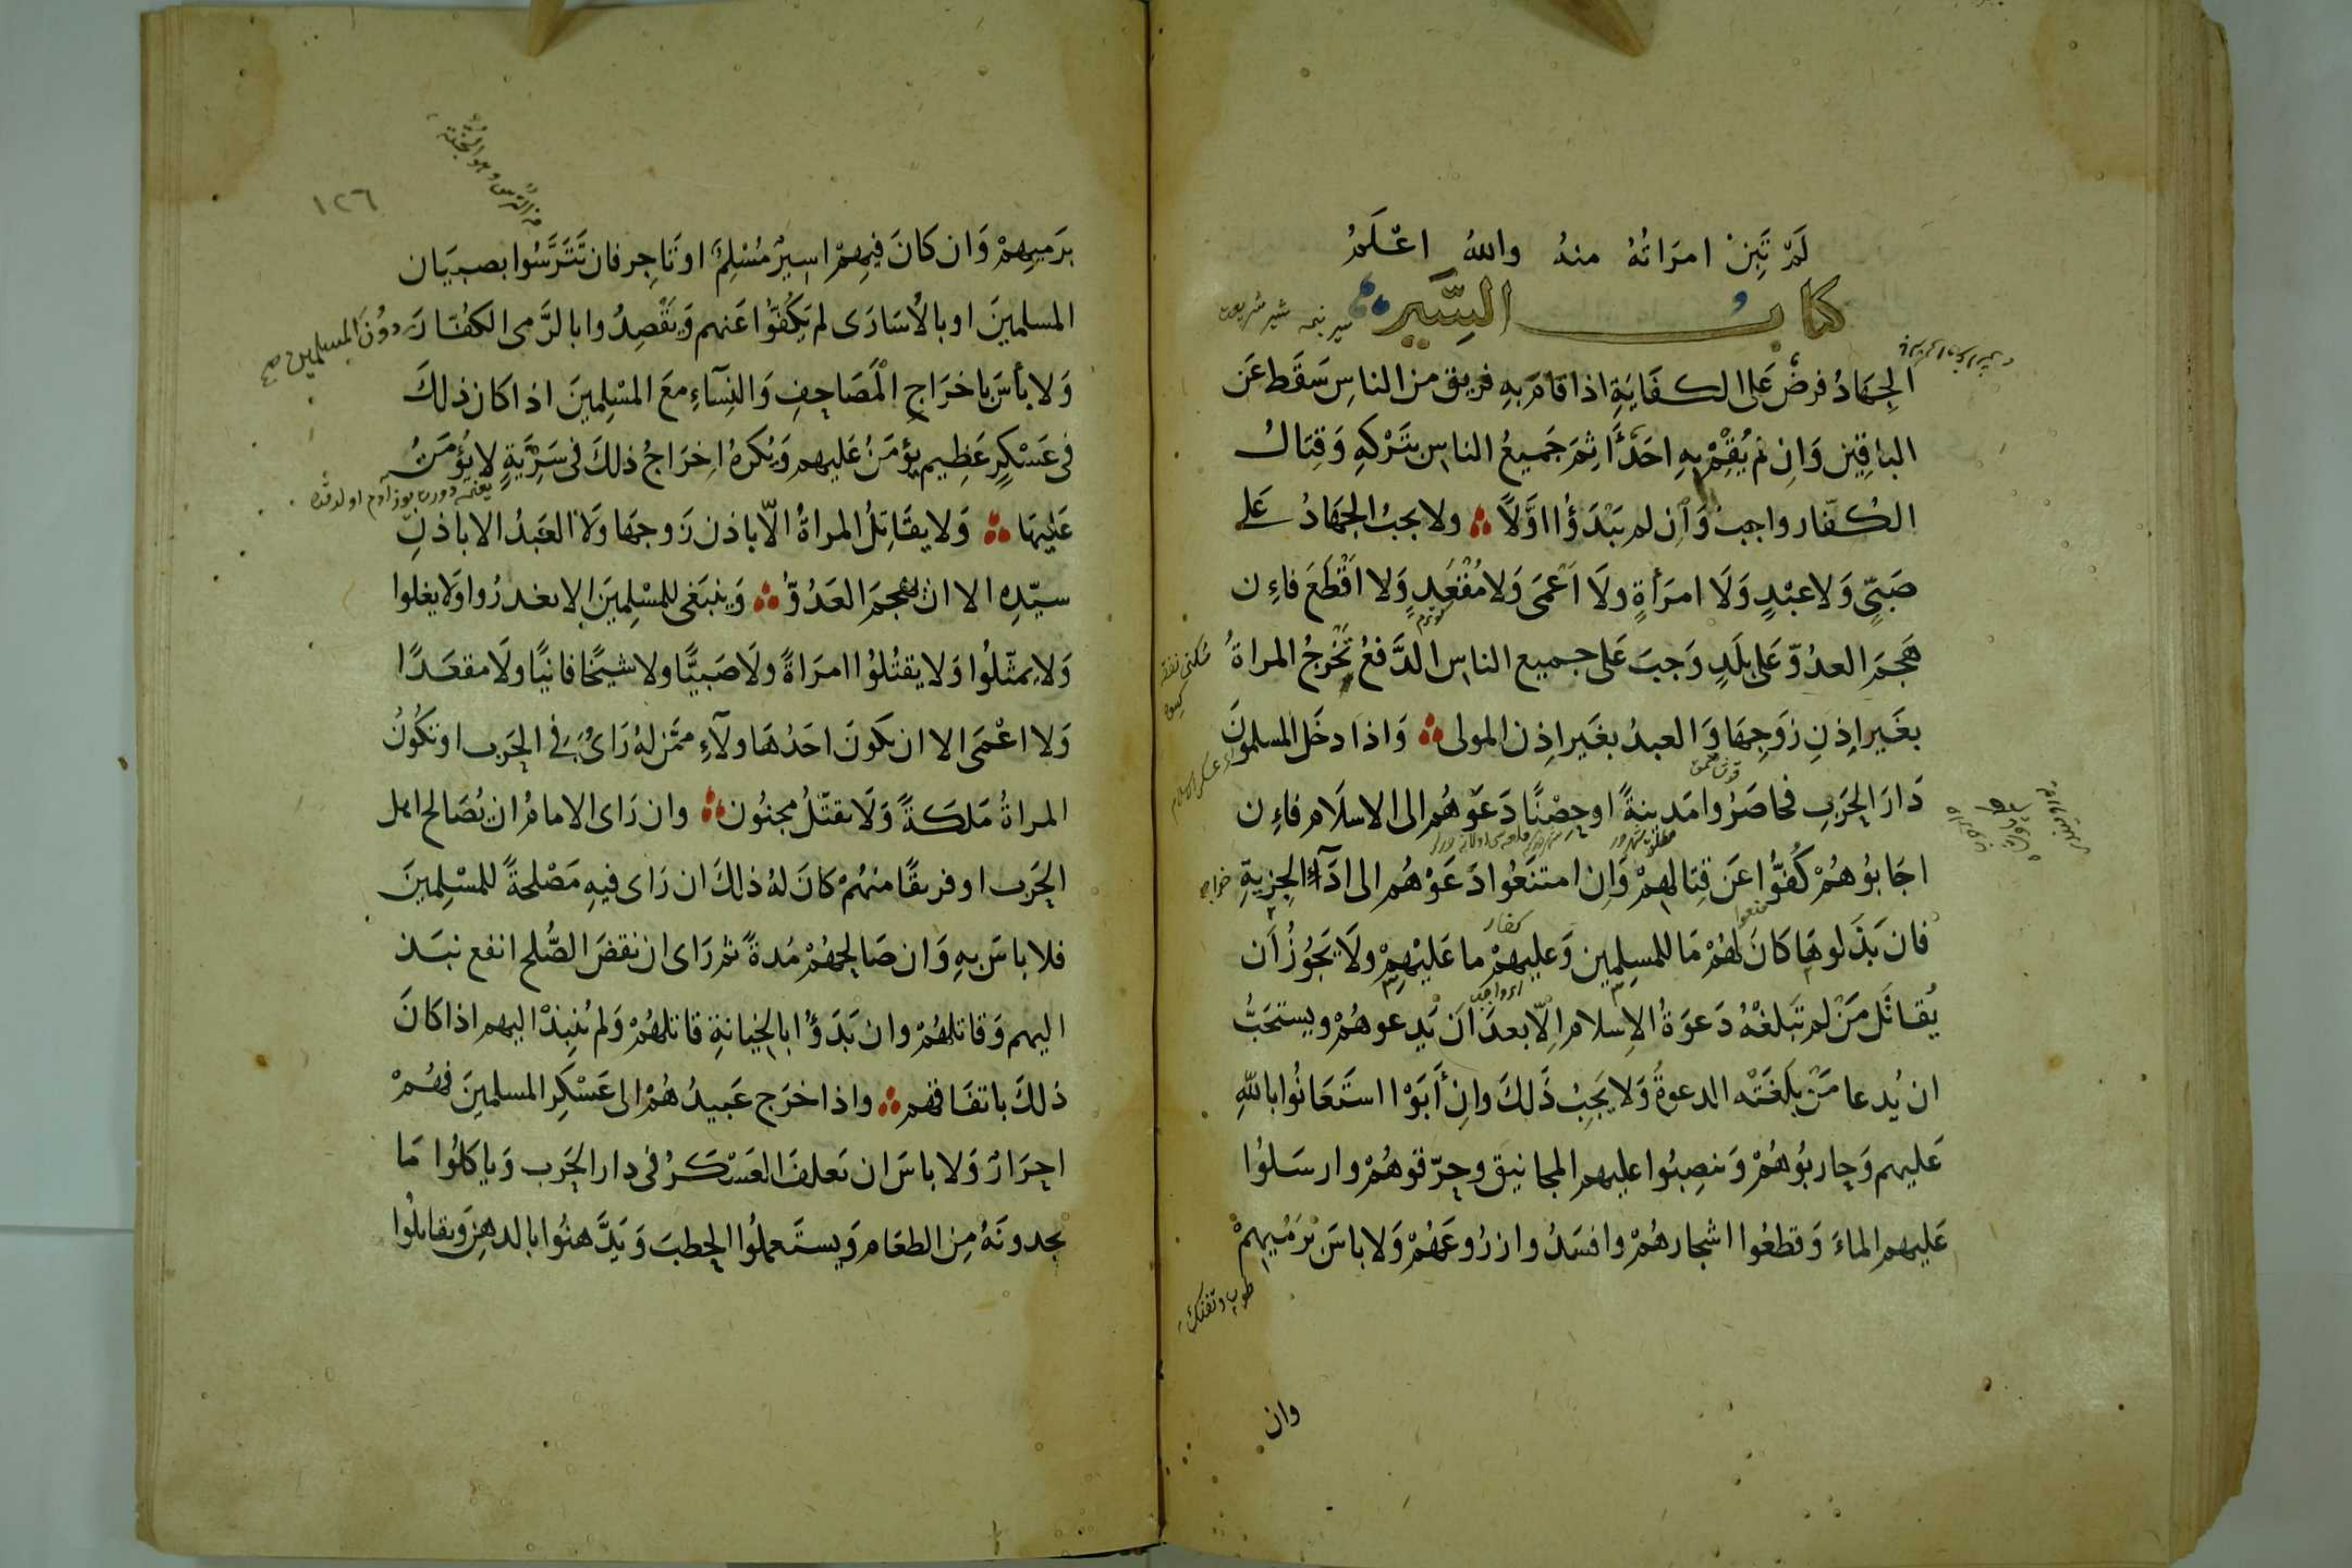 لَمْ تَبِنْ امرَاتُهُ منهُ واللهُ اعْلَمُ
كتابُ السِّيَرِ
الجِهَادُ فرضٌ عَلى الكفَايَةِ اذا قامَ بِهِ فريق من الناسِ سَقَط عَن
الباقِين وَاِن لم يُقِمْ بِهِ احَدٌ اَثِمَ جَميعُ الناسِ بتَرْكهِ وَقِتَالُ
الكُفّار واجبٌ وَاِن لم يَبْدَؤُا اوَّلاً ولا يجبُ الجهَادُ عَلى
صَبِيٍّ وَلا عبْدٍ وَلَا امرَأةٍ ولَا اَعْمَى وَلا مُقْعَدٍ وَلا اقْطَعَ فاءِن
هَجمَ العدُوّ عَلى بلَدٍ وَجبَ عَلى جميع الناس الدَّفعُ تَخْرجُ المراةُ
بغَير اِذنِ زوَجِهَا وَالعبدُ بغَير اِذن المولى وَاذا دخَل المسلمونَ
دَارَ الحَربِ فحاصَرُوا مَدينةً او حِصْنًا دَعَوهُم الى الاسلَام فاءِن
اجَابُوهُمْ كَفُّوا عَن قِتَالهِمْ وَاِن امتنَعُوا دَعَوْهُم الى ادَآءِ الجِزيةِ
فان بَذَلوهَا كَانَ لهُمْ مَا للمسلِمِين وَعليهمْ ما عَليْهِمْ ولَا يَجُوزُ اَن
يُقاتَل مَنْ لم تَبلغْهُ دَعوَةُ الاِسلام اِلّا بعدَ اَن يَدعوهُمْ ويستحَبُّ
ان يُدعا مَنْ بلَغَتْه الدعوةُ وَلا يَجِبُ ذَلكَ وان أَبَوْا استَعَانُوا باللهِ
عَليهم وَحاربُوهُمْ وَنصبُوا عليهم المجانيق وحرّقوهُمْ وارسَلوُا
عَليهم الماءَ وَقطعُوا اشجارهُمْ وافسَدُوا زرُوعَهُمْ وَلا باسَ برَمْيِهِمْ
وان
١٢٦
برَميهِمْ وَان كانَ فيهِمْ اسيرٌ مُسْلمٌ او تَاجِر فان تَتَرَّسُوا بصبيَان
المسلمينَ او بالأسَارَى لم يَكُفّوُا عَنهم وَيَقْصِدُوا بالرَّمى الكفّارَ دوُنَ المسلمين صح
وَلا بأسَ باخرَاجِ الْمَصَاحِفِ وَالنِسَآءِ معَ المسْلِمِينَ اذا كان ذلكَ
فى عَسْكرٍ عَظِيم يؤمَنُ عَليهم وَيُكرهُ اِخرَاجُ ذلكَ فى سَرِيَّةٍ لا يُؤمَنُ
عَليهَا وَلا يقَاتِلُ المراةُ الّا باذن زَوجهَا وَلَا العَبدُ الا باذنِ
سيّدِه الا ان يهجمَ العَدُوّ وَينبَغى للمسْلِمينَ الا يغدرُوا وَلا يغلوا
وَلا يمثّلُوا وَلا يقتُلوُا امرَاةً ولَا صَبيًّا ولا شيخًا فانيًا ولَا مقعَدًا
وَلا اعْمَى الا ان يكونَ احَدُ هَاولَآءِ ممَّن لهُ رَاىٌ فى الحَرب او تكُونُ
المراةُ مَلكَةً وَلَا يقتلُ مجنُون وان رَاى الامامُ ان يُصَالح اهل
الحَرب او فريقًا منهُمْ كانَ لهُ ذلكَ ان رَاى فيهِ مَصْلحةً للمسْلِمينَ
فلا باسَ بهِ وَان صَالحهُمْ مُدةً ثم رَاى ان نقضَ الصُّلح انفع نبَذ
اليهم وَقاتلهُمْ وان بَدَؤُا بالخيانةِ قاتلهُمْ وَلم يُنبِذْ اليهم اذا كانَ
ذلكَ باتفَاقهم واذا خرَج عَبيدُهُمْ الى عَسْكَرِ المسلمينَ فهُمْ
احرَارٌ وَلا باسَ ان يَعلفَ العَسْكرُ فى دار الحَرب وَياكلُوا مَا
يجدونَهُ مِن الطعَام وَيستَعملُوا الحطبَ وَيَدَّهنُوا بالدهنِ وَيقاتلُوا